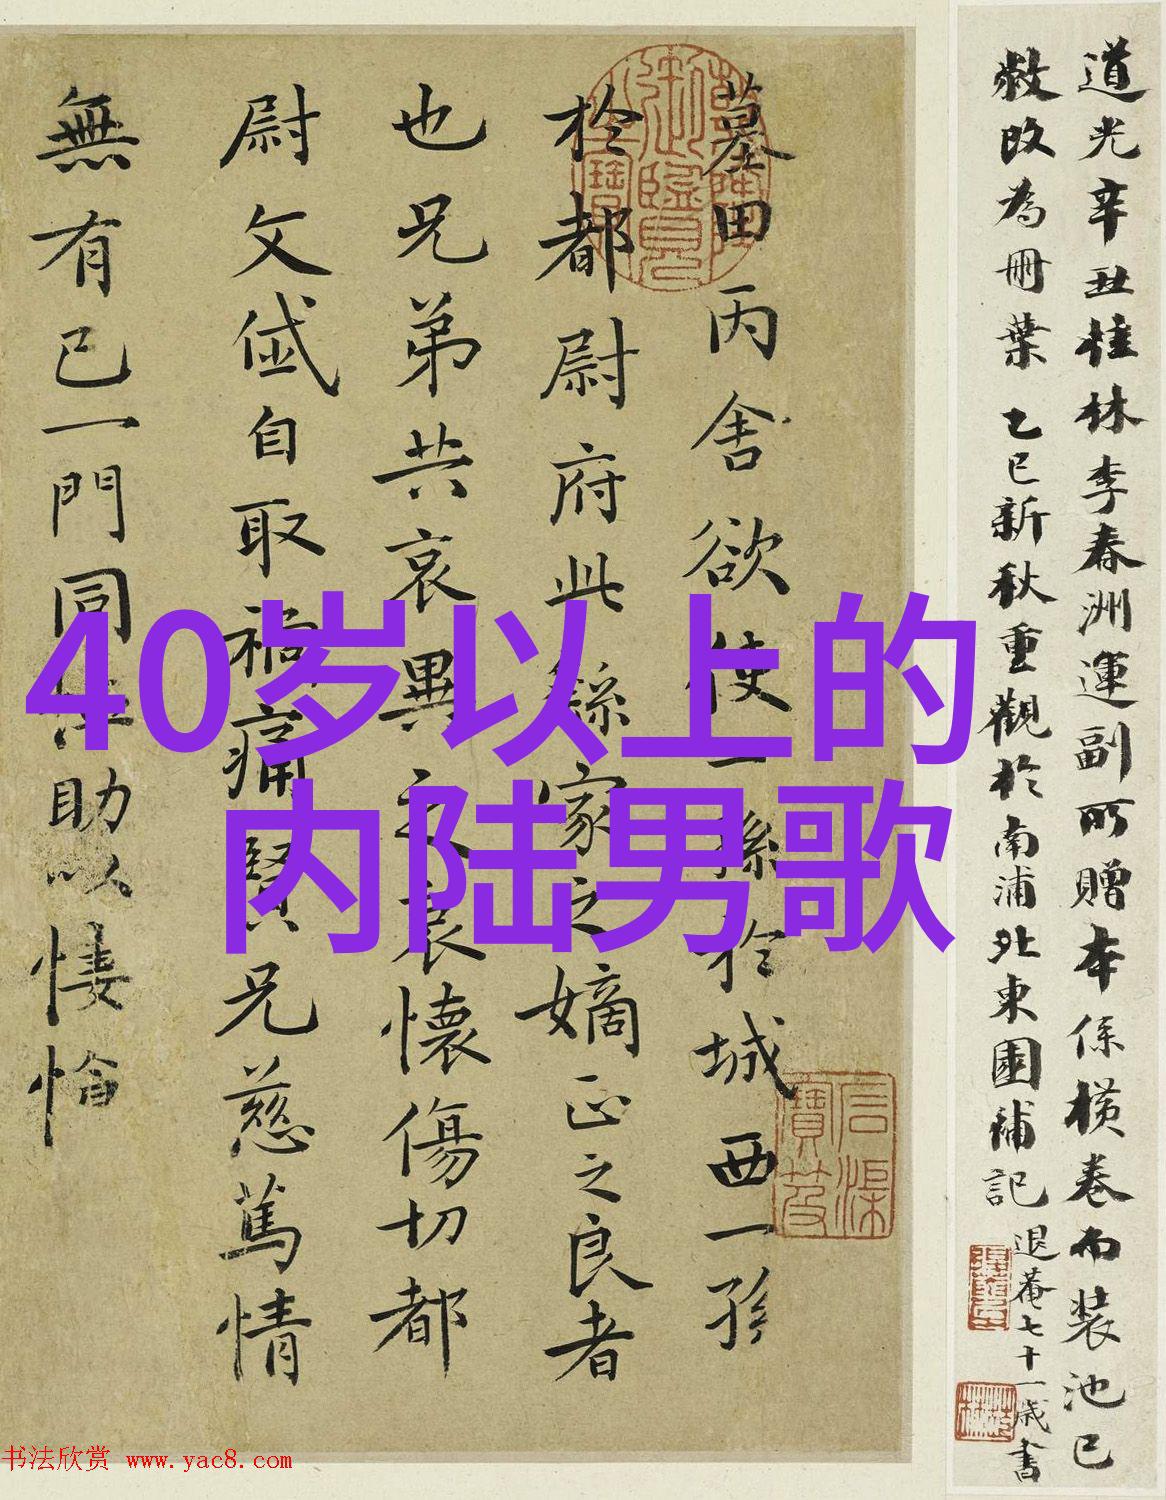 道光辛丑桂林李春洲運副所贈本係橫卷而裝池已
敝改為冊葉 乙巳新秋重觀於南浦北東園補記 退菴七十一歲書
墓田丙舍欲使一孫於城西一孫
於都尉府此繇家之嫡正之良者
也兄弟共哀異之哀懷傷切都
尉文岱自取禍痛賢兄慈篤情
無有已一門同恤助以悽愴
40岁以上的
内陆男歌
书法欣赏 www.yac8.com